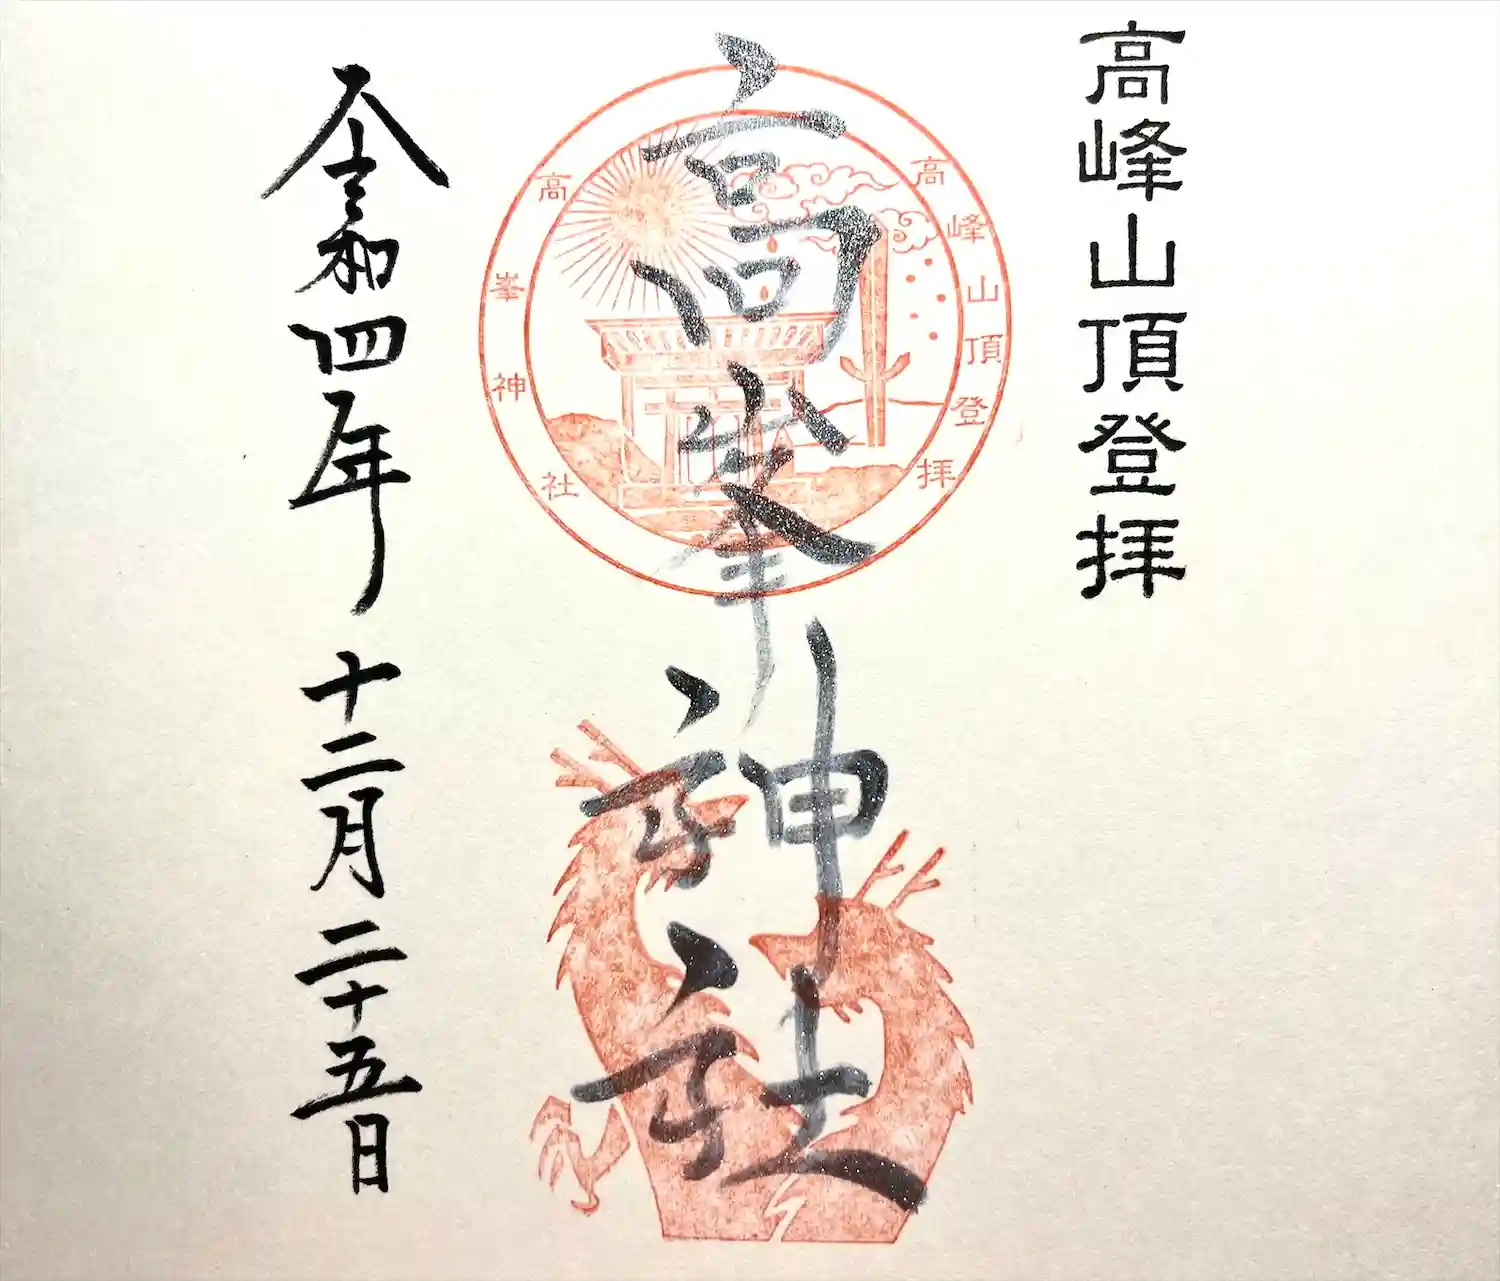 高峰山頂登拝
高峯神社
高峰山頂登拝
高峯神社
令和四年十二月二十五日